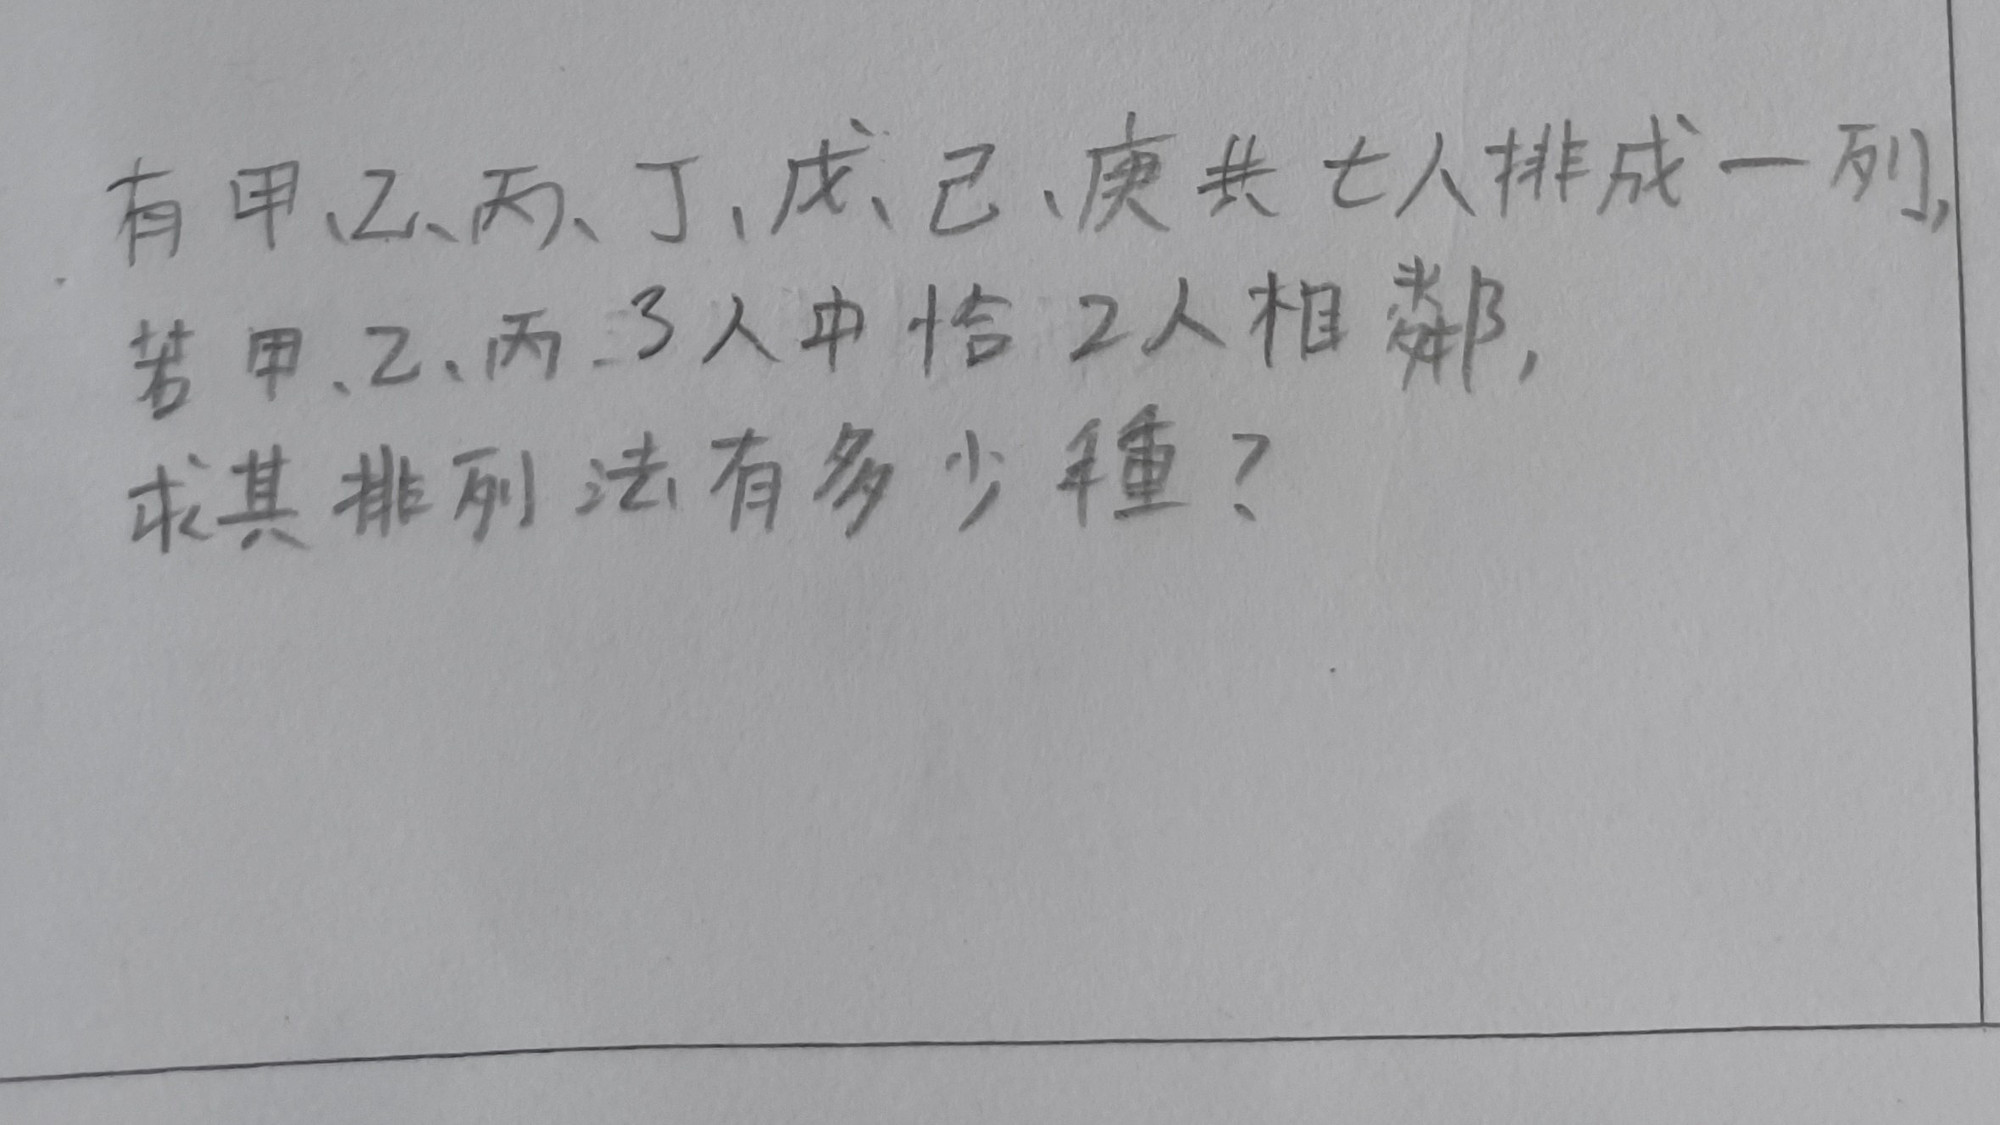 有甲、乙、丙、丁、戊、己、庚共七人排成一列,
若甲、乙、丙3人中恰2人相鄰,
求其排列法有多少種?